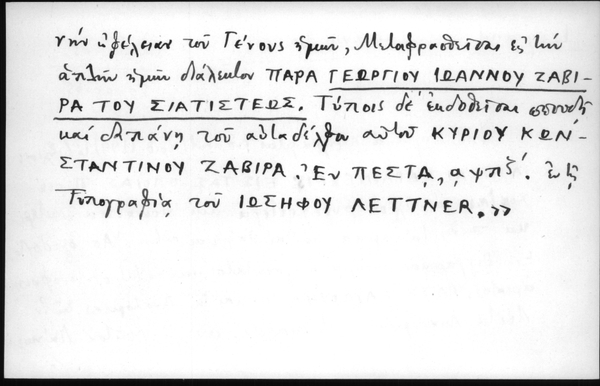 νὴν ὠφέλειαν τοῦ Γένους ἡμῶν, Μεταφρασθεῖσαι εἰς τὴν
ἁπλῆν ἡμῶν διάλεκτον ΠΑΡΑ ΓΕΩΡΓΙΟΥ ΙΩΑΝΝΟΥ ΖΑΒΙ-
ΡΑ ΤΟΥ ΣΙΑΤΙΣΤΕΩΣ. Τύποις δὲ ἐκδοθεῖσαι σπουδῇ
καὶ δαπάνῃ τοῦ αὐταδέλφου αὐτοῦ ΚΥΡΙΟΥ ΚΩΝ-
ΣΤΑΝΤΙΝΟΥ ΖΑΒΙΡΑ. Ἐν ΠΕΣΤΑ, αψπζ΄. ἐν τῇ
Τυπογραφίᾳ τοῦ ΙΩΣΗΦΟΥ ΛΕΤΤNER.»